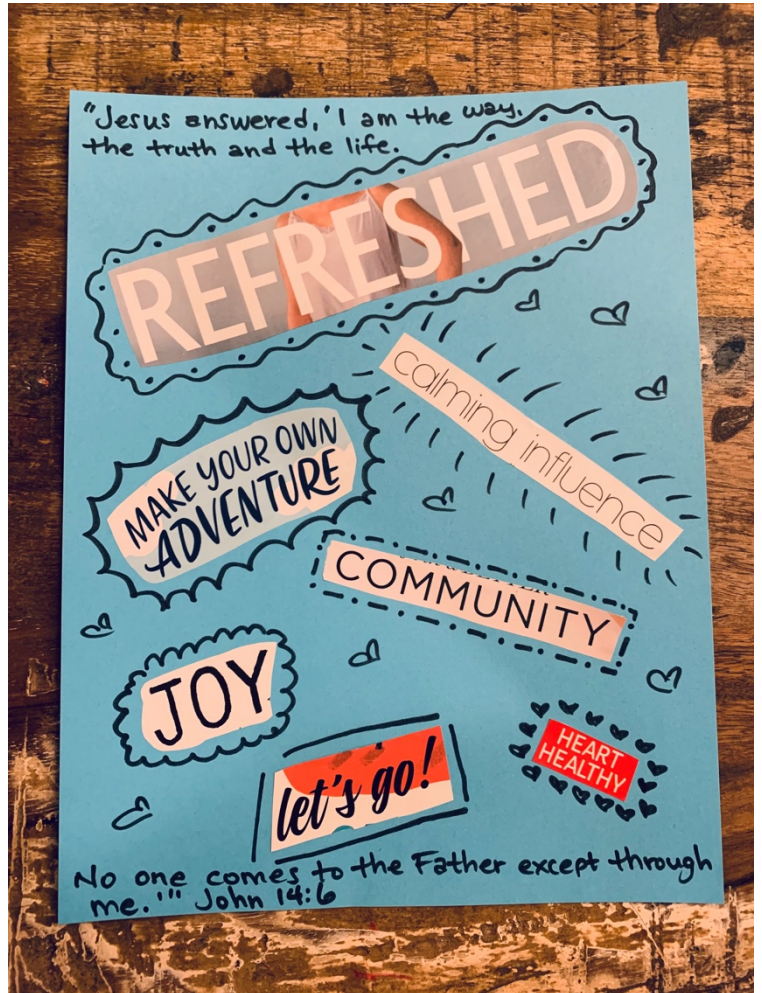 "Jesus answered, 'I am the way,
the truth and the life.
REFRESHED
calming influence
MAKE YOUR OWN
ADVENTURE
COMMUNITY
JOY
let's go!
HEART
HEALTHY
No one comes to the Father except through
me.'" John 14:6